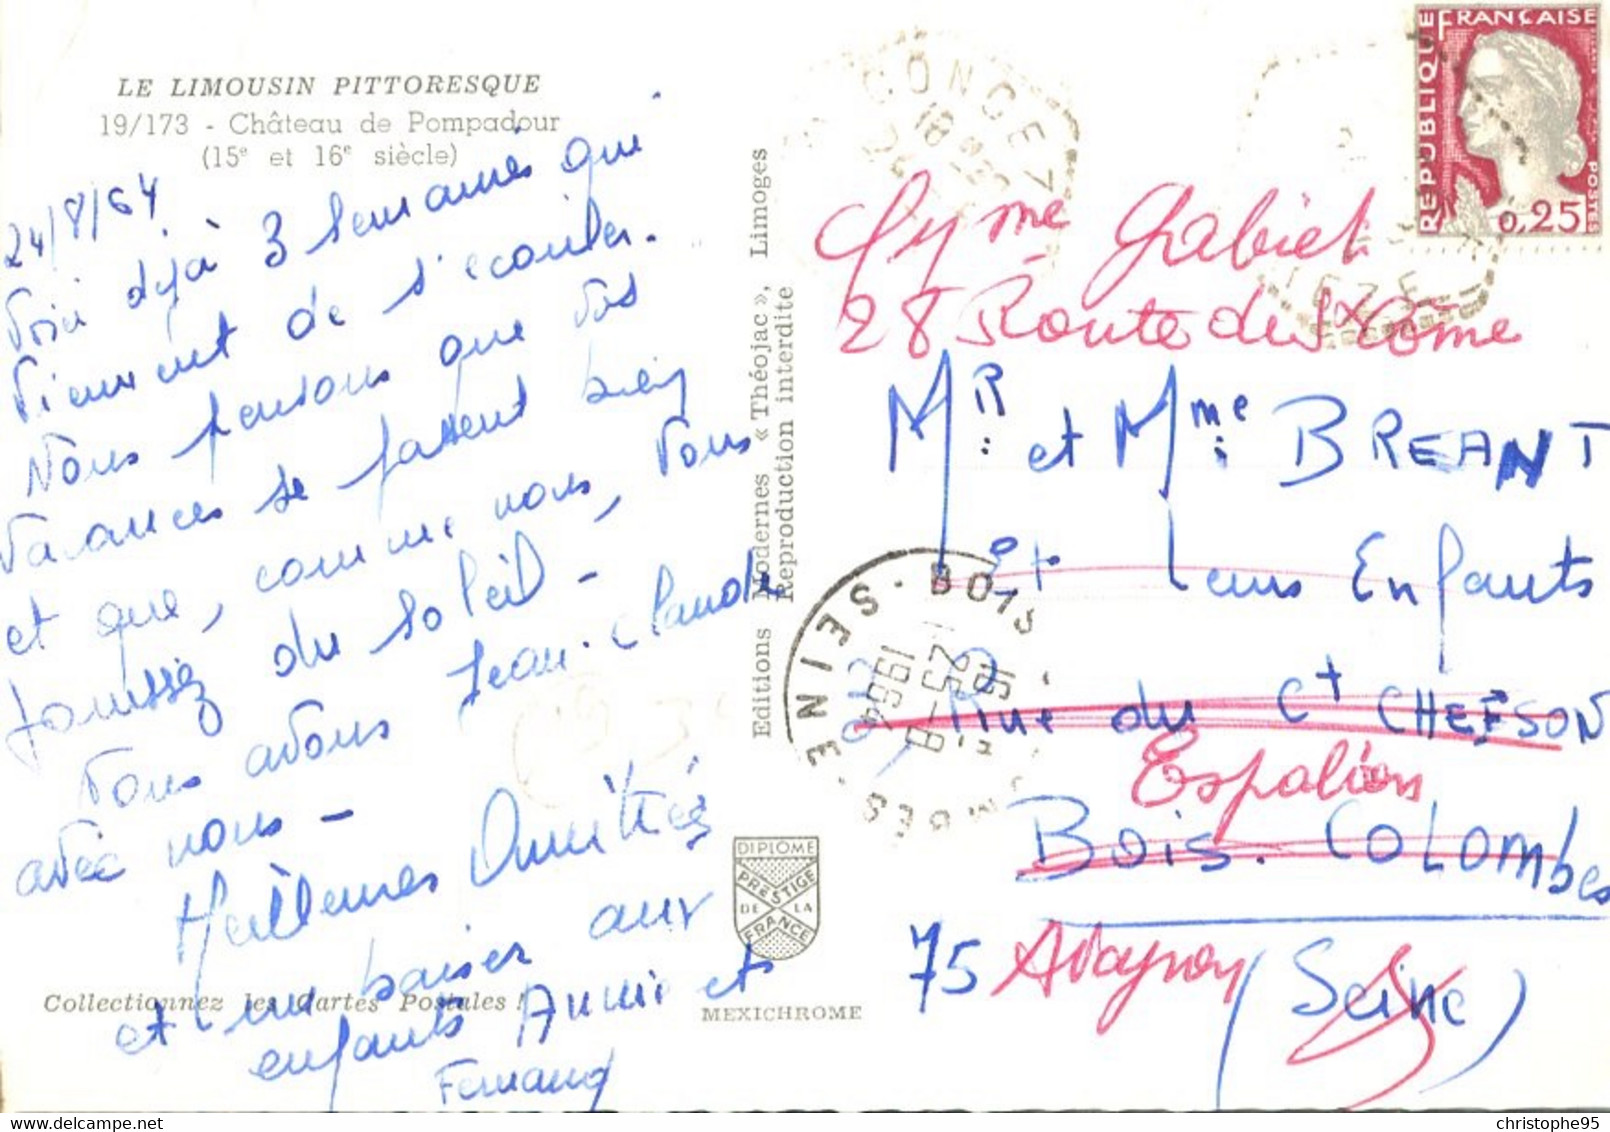 LE LIMOUSIN PITTORESQUE
19/173 - Château de Pompadour
(15e et 16e siècle)
24/8/64
Voici déjà 3 semaines qui
viennent de s'écouler.
Nous pensons que vos
vacances se passent bien
et que, comme nous, vous
jouissez du soleil -
Nous avons Jean-Claude
avec nous -
Meilleures Amitiés
et un baiser aux
enfants Annie et
Fernand
Collectionnez les Cartes Postales !
Editions Modernes « Théojac », Limoges
Reproduction interdite
DIPLOME
PRESTIGE
DE LA
FRANCE
MEXICHROME
REPUBLIQUE FRANÇAISE
POSTES
0,25
CONCE
18
BOIS
SEINE
16 H
25-8
1964
CORREZE
Mme Gabiet
28 Route de St Côme
Mr. et Mme. BREANT
et Leurs Enfants
Rue du Ct CHEFSON
Espalion
Bois. COLOMBES
75 Aveyron (Seine)
christophe95